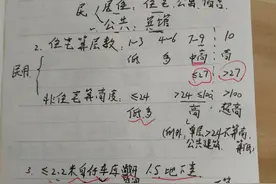 民 居住：住宅、公寓、宿舍
公共：其增
2. 住宅算层数：1-3 4-6 7-9 10
民用 低 多 中高 高
≤27 >27
非住宅算高度：≤24 >24 ≤100 >100
低多 高 超高
例外，单层>24不算高
公共建筑
3. ≤2.2米自行车库 1.5地下室